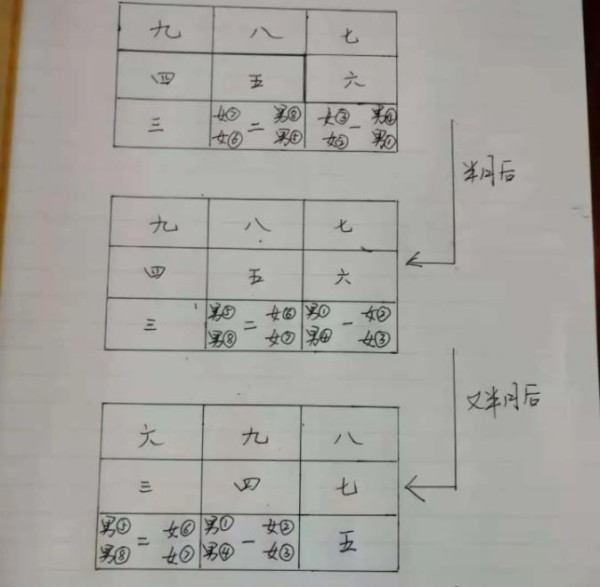 九 八 七
四 五 六
三 女⑦ 女⑥ 二 男⑧ 男⑤ 女③ 女② 一 男④ 男①
半月后
九 八 七
四 五 六
三 男⑤ 男⑧ 二 女⑥ 女⑦ 男① 男④ 一 女② 女③
又半月后
六 九 八
三 四 七
男⑤ 男⑧ 二 女⑥ 女⑦ 男① 男④ 一 女② 女③ 五